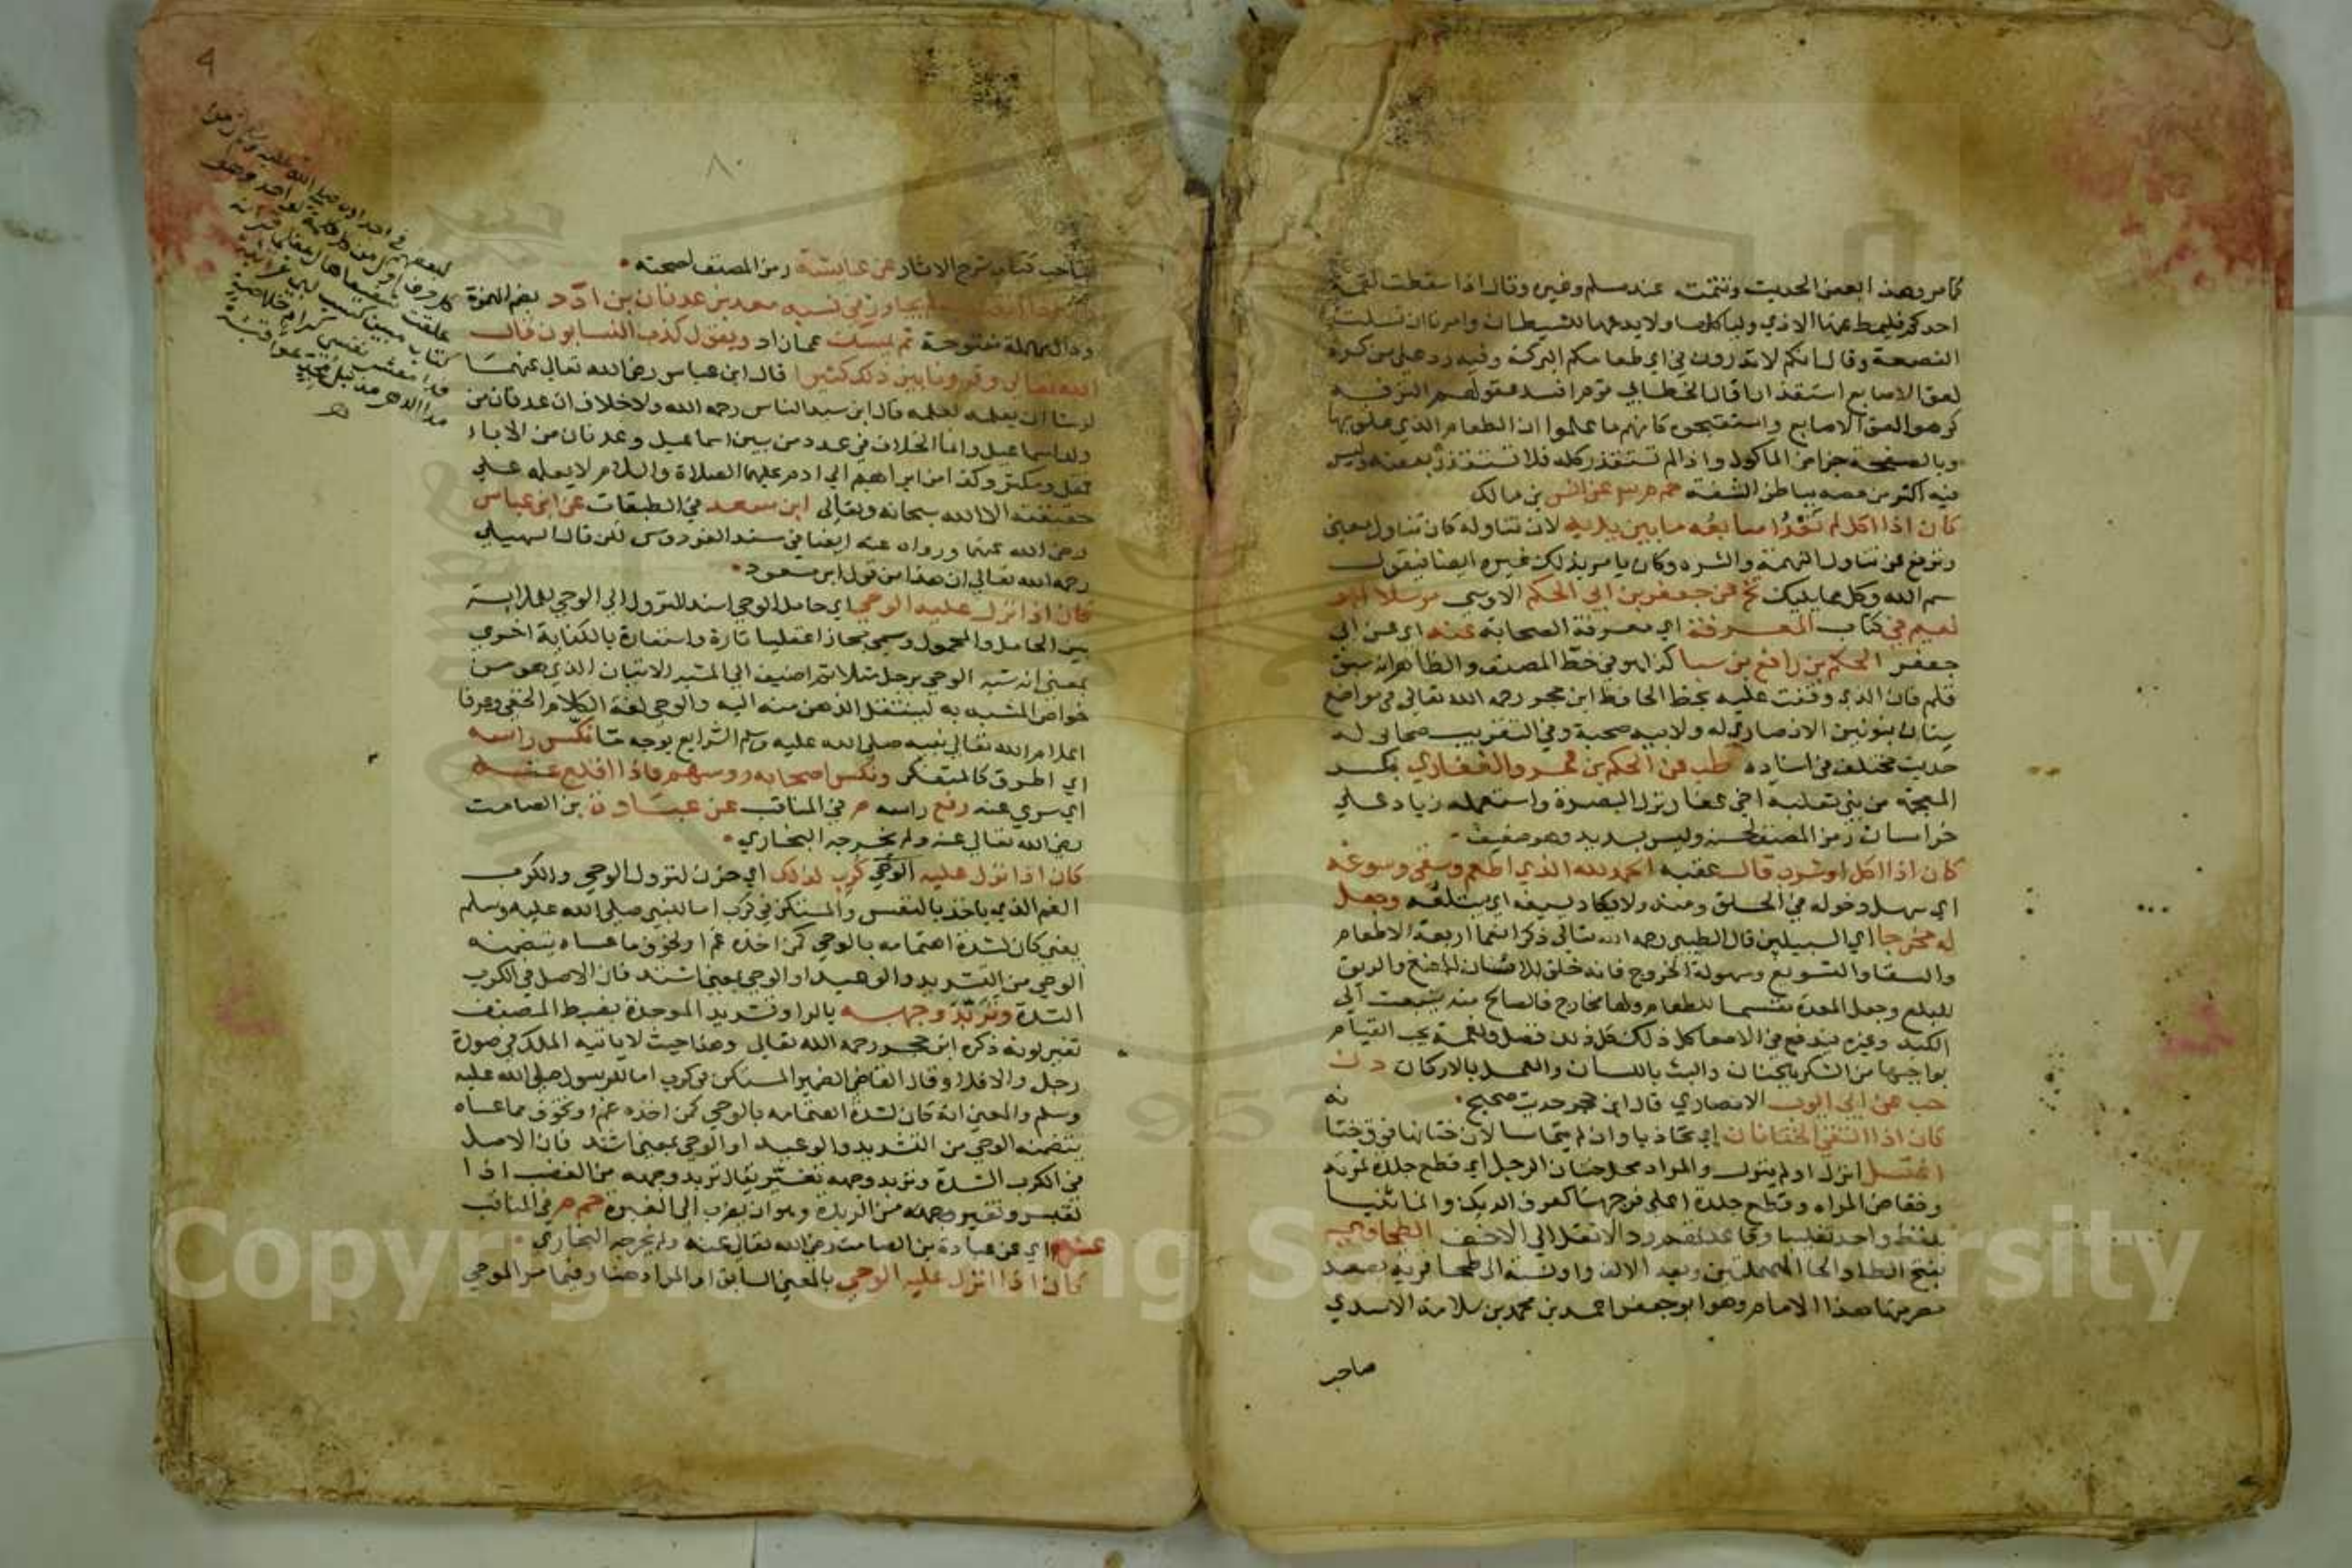 كما مر وهذا بعض الحديث وتتمته عند مسلم وغيره وقال اذا سقطت لقمة
احدكم فليمط عنها الاذي ولياكلها ولا يدعها للشيطان وامرنا ان نسلت
القصعة وقال انكم لا تدرون في اي طعامكم البركة وفيه رد علي من كره
لعق الاصابع استقذارا قال الخطابي قوم افسد عقولهم الترفه
كرهوا لعق الاصابع واستقبحوه كانهم ما علموا ان الطعام الذي علق بها
وبالصفحة جزء من الماكول واذا لم تستقذر كله فلا تستقذر بعضه وليس
فيه اكثر من مصه بباطن الشفة حم م عن انس بن مالك
كان اذا اكل لم تعد اصابعه ما بين يديه لان تناوله كان تناول
وترفع عن تناول النهمة والشره وكان يامر بذلك غيره ايضا فيقول
سم الله وكل مما يليك تخ عن جعفر بن ابي الحكم الاوسي مرسلا ابو
نعيم في كتاب المعرفة اي معرفة الصحابة عنه اي عن ابي
جعفر الحكم بن رافع بن سبا كذا هو في خط المصنف والظاهر انه سبق
قلم فان الذي وقفت عليه بخط الحافظ ابن حجر رحمه الله تعالي في مواضع
سنان بنونين الانصاري له ولابيه صحبة وفي التقريب صحابي له
حديث مختلف في اسناده طب عن الحكم بن عمرو الغفاري بكسر
المعجمة من بني ثعلبة اخي غفار نزل البصرة واستعمله زياد علي
خراسان رمز المصنف لحسنه وليس بسديد وهو ضعيف
كان اذا اكل او شرب قال عقبه الحمد لله الذي اطعم وسقي وسوغه
اي سهل دخوله في الحلق ومنه ولا يكاد يسيغه اي يبتلعه وجعل
له مخرجا اي السبيلين قال الطيبي رحمه الله تعالي ذكر انعما اربعة الاطعام
والسقا والتسويغ وسهولة الخروج فانه خلق للانسان للمضغ والريق
للبلع وجعل المعدة مقسما للطعام ولها مخارج فالصالح منه ينبعث الي
الكبد وغيره يندفع في الامعا كل ذلك فضل ونعمة يجب القيام
بواجبها من الشكر بالجنان والبث باللسان والعمل بالاركان د ن
حب عن ابي ايوب الانصاري قال ابن حجر حديث صحيح
كان اذا التقي الختانان اي تحاذيا وان لم يتماسا لان ختانها فوق ختا
اغتسل انزل او لم ينزل والمراد محل ختان الرجل اي قطع جلدة ثمرته
وخفاض المراة وقطع جلدة اعلي فرجها كعرف الديك وانما ثنيا
بلفظ واحد تغليبا وقاعدته رد الاثقل الي الاخف الطحاوي
بفتح الطا والحا المهملتين وبعد الالف واو نسبة الي طحا قرية بصعيد
مصر منها هذا الامام وهو ابو جعفر احمد بن محمد بن سلامة الاسدي
صاحب
صاحب كتاب شرح الاثار عن عايشة رمز المصنف لصحته
يجاوز في نسبه معد بن عدنان بن ادد بضم الهمزة
ودال مهملة مفتوحة ثم يمسك عما زاد ويقول كذب النسابون قال
الله تعالي وقرونا بين ذلك كثيرا قال ابن عباس رضي الله تعالي عنهما
لو شا ان يعلمه لعلمه قال ابن سيد الناس رحمه الله ولا خلاف ان عدنان من
ولد اسماعيل وانما الخلاف في عدد من بين اسماعيل وعدنان من الاباء
فمقل ومكثر وكذا من ابراهيم الي ادم عليهما الصلاة والسلام لا يعلمه علي
حقيقته الا الله سبحانه وتعالي ابن سعد في الطبقات عن ابن عباس
رضي الله عنهما ورواه عنه ايضا في مسند الفردوس لكن قال السهيلي
رحمه الله تعالي ان هذا من قول ابن مسعود
كان اذا نزل عليه الوحي اي حامل الوحي اسند النزول الي الوحي للملابسة
بين الحامل والمحمول وسمي مجازا عقليا تارة واستعارة بالكناية اخري
بمعني انه شبه الوحي برجل مثلا ثم اضيف الي المشبه الاتيان الذي هو من
خواص المشبه به لينتقل الذهن منه اليه والوحي لغة الكلام الخفي وعرفا
اعلام الله تعالي نبيه صلي الله عليه وسلم الشرايع بوجه ما نكس راسه
اي اطرق كالمتفكر ونكس اصحابه روسهم فاذا اقلع عنه
اي سري عنه رفع راسه م في المناقب عن عبادة بن الصامت
رضي الله تعالي عنه ولم يخرجه البخاري
كان اذا نزل عليه الوحي كرب لذلك اي حزن لنزول الوحي والكرب
الغم الذي ياخذ بالنفس والمستكن في كرب اما للنبي صلي الله عليه وسلم
يعني كان لشدة اهتمامه بالوحي كمن اخذه غم او لخوف ما عساه يتضمنه
الوحي من التشديد والوعيد او الوحي بمعني اشتد فان الاصل في الكرب
الشدة وتربد وجهه بالرا وتشديد الموحدة بضبط المصنف
تغير لونه ذكره ابن حجر رحمه الله تعالي وهذا حيث لا ياتيه الملك في صورة
رجل والا فلا وقال القاضي الضمير المستكن في كرب اما للرسول صلي الله عليه
وسلم والمعني انه كان لشدة اهتمامه بالوحي كمن اخذه غم او لخوف ما عساه
يتضمنه الوحي من التشديد والوعيد او الوحي بمعني اشتد فان الاصل
في الكرب الشدة وتربد وجهه تغير يقال تربد وجهه من الغضب اذا
تعبس وتغير وجهه من الربدة وهو ان يضرب الي الغبرة حم م في المناقب
عنه اي عن عبادة بن الصامت رضي الله تعالي عنه ولم يخرجه البخاري
كان اذا انزل عليه الوحي بالمعني السابق اذ المراد هنا وفيما مر الموحي
Copyright © King Saud University
1957